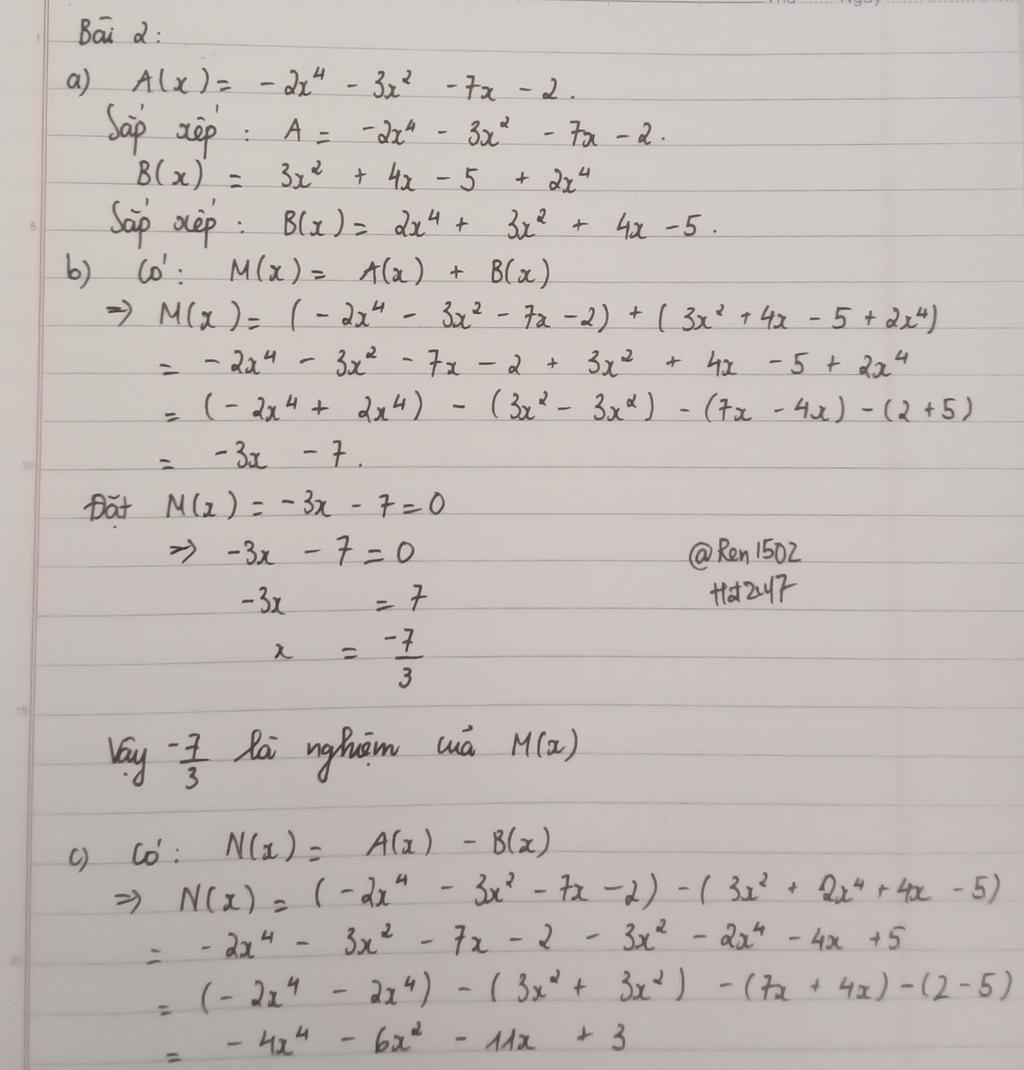 Bài 2:
a) A(x) = - 2x⁴ - 3x² - 7x - 2.
Sắp xếp : A = -2x⁴ - 3x² - 7x - 2.
B(x) = 3x² + 4x - 5 + 2x⁴
Sắp xếp : B(x) = 2x⁴ + 3x² + 4x - 5.
b) Có: M(x) = A(x) + B(x)
=> M(x) = (- 2x⁴ - 3x² - 7x - 2) + (3x² + 4x - 5 + 2x⁴)
= - 2x⁴ - 3x² - 7x - 2 + 3x² + 4x - 5 + 2x⁴
= (- 2x⁴ + 2x⁴) - (3x² - 3x²) - (7x - 4x) - (2 + 5)
= -3x - 7.
Đặt M(x) = -3x - 7 = 0
=> -3x - 7 = 0
@Ren1502
-3x = 7
x = -7/3
Vậy -7/3 là nghiệm của M(x)
c) Có: N(x) = A(x) - B(x)
=> N(x) = (-2x⁴ - 3x² - 7x - 2) - (3x² + 2x⁴ + 4x - 5)
= - 2x⁴ - 3x² - 7x - 2 - 3x² - 2x⁴ - 4x + 5
= (- 2x⁴ - 2x⁴) - (3x² + 3x²) - (7x + 4x) - (2 - 5)
= - 4x⁴ - 6x² - 11x + 3